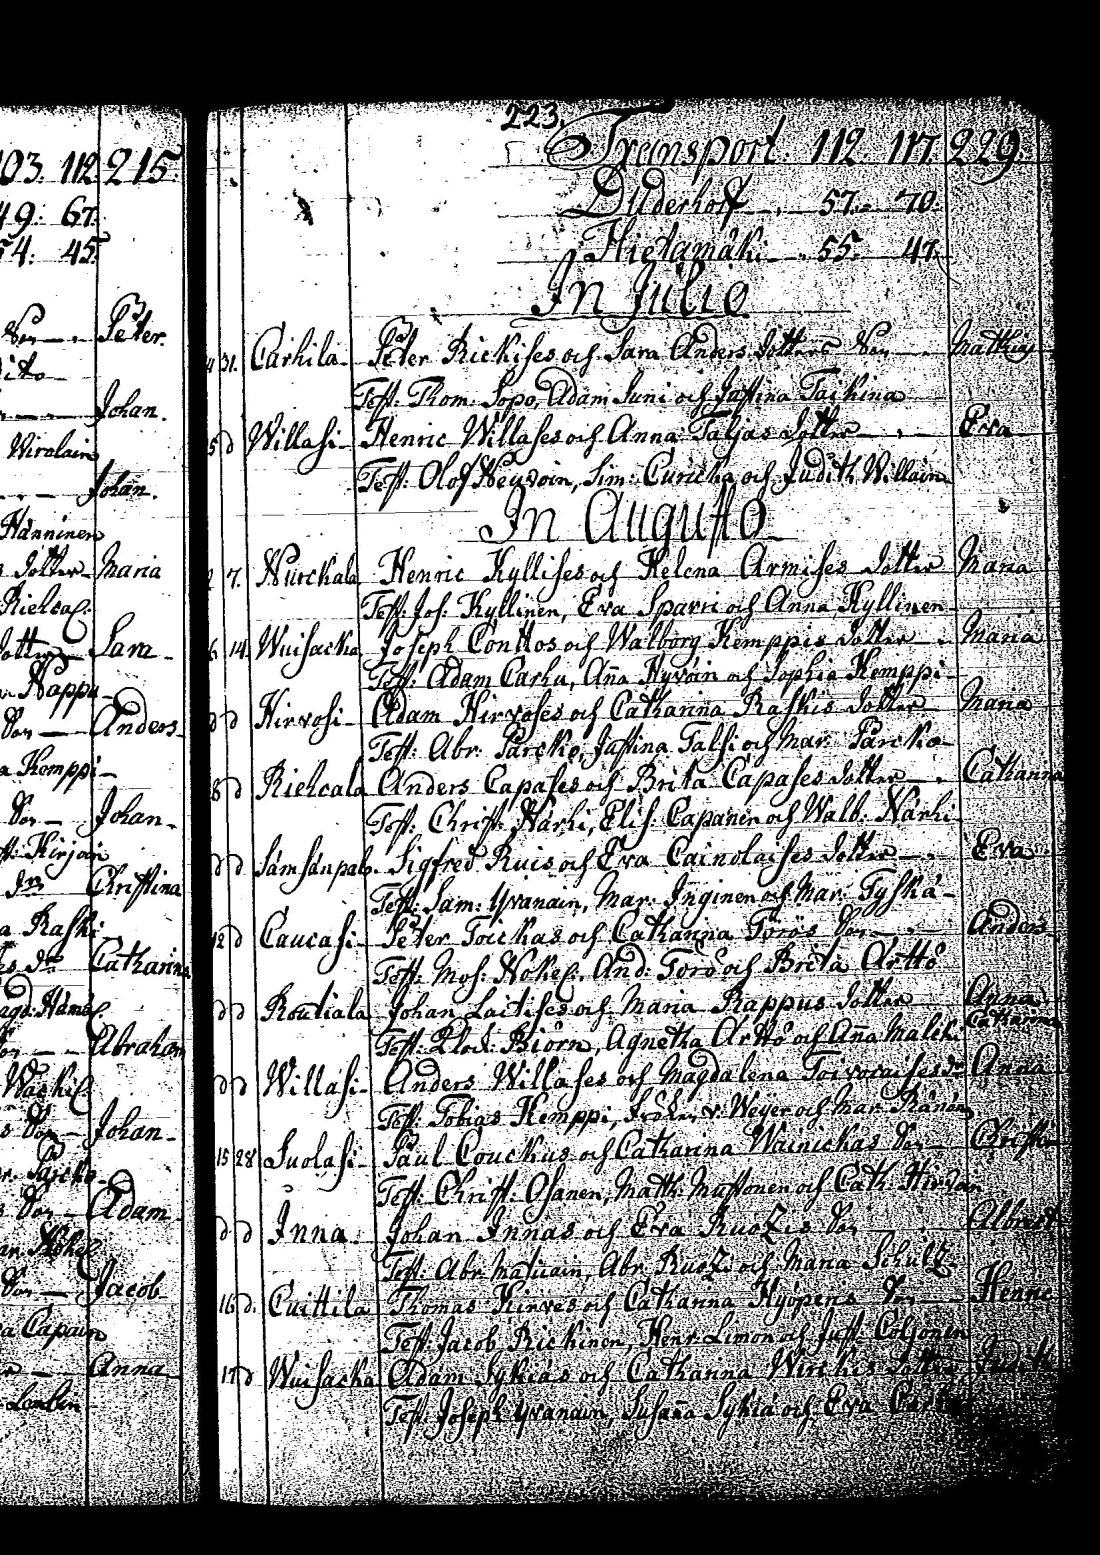 103. 112 215.
49. 67.
54. 45.
Son — . Peter.
dito
Johan.
Wirolain
Johan.
Hänninen
Dotter — Maria
Rieheas:
Dotter — Sara
Nappu
Son — Anders
Kemppi
Son — Johan
Test: Hirjäin
Dr Christina
Raski
Dr Catharina
Magd: Häms:
Son — Abraham
Son — Johan
Son — Adam
Son — Jacob
Capain
Anna
Lonkin
223.
Transport. 112. 117. 229.
Duderhoff — . 57. 70.
Hietamäki — . 55. 47.
In Julio
4 31. Carhila — Peter Rickises och Sara Anders dotters Son — . Mathias
Test: Thom: Sopo, Adam Juni och Justina Taikina
5 d Willasi — Henric Willases och Anna Taljas dotter — . Eva
Test: Olof Heyvoin, Sim: Curicka och Judith Willain
In Augusto
2 7. Nurckala Henric Kyllises och Helena Armises dotter Maria
Test: Jos: Kyllinen, Eva Sparri och Anna Kyllinen
6 14. Wuisacka Joseph Conttos och Walborg Kemppis dotter — . Maria
Test: Adam Carhu, Aña Hyvöin och Sophia Kemppi —
d d Hirvosi — Adam Hirvoses och Catharina Raskis dotter Maria
Test: Abr: Parcko, Justina Talsi och Mar: Parcko —
8 d Riehcala Anders Capases och Brita Capases dotter — . Catharina
Test: Christ: Närhi, Elis: Capanen och Walb: Närhi
d d Sämsänpalo. Sigfred Ruis och Eva Cainolaises dotter — . Eva
Test: Sam: Yvanain, Mar: Inginen och Mar: Tyskä —
12 d Caucasi — Peter Toickas och Catharina Törös Son — . Anders
Test: Mos: Nokel:, And: Törö och Brita Arttö
d d Routiala Johan Laitises och Maria Rappus dotter Anna Catharina
Test: Klock: Biörn, Agnetha Arttö och Aña Malcki
d d Willasi — Anders Willases och Magdalena Toivoraises dr Anna
Test: Tobias Kemppi, v: Weyer och Mar: Ränän
15 28 Suolasi — Paul Couckus och Catharina Wainickas Son — Christer
Test: Christ: Osanen, Math: Mustonen och Cath: Hirvon
d d Inna Johan Innas och Eva Ruotzis Son Albrect
Test: Abr: Maticain, Abr: Ruotz och Maria Schultz
16 d. Cuittila Thomas Kirves och Catharina Hyöpens Son — Henric
Test: Jacob Rickinen, Henr: Limon och Just: Coljonen
17 d Wuisacka Adam Sykiäs och Catharina Wirckis dotter Judith
Test: Joseph Yvanain, Susaña Sykiä och Eva